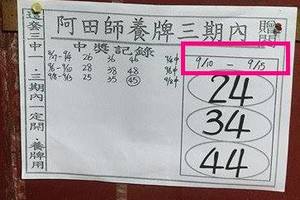 阿田師養牌三期內
贈閱
中獎記錄
8/17-9/4 26 36 46
9/6-9/10 28 38 48
9/8-9/13 25 35 45
9/10 - 9/15
24
34
44
這套三中
・三期內一定開・養牌用